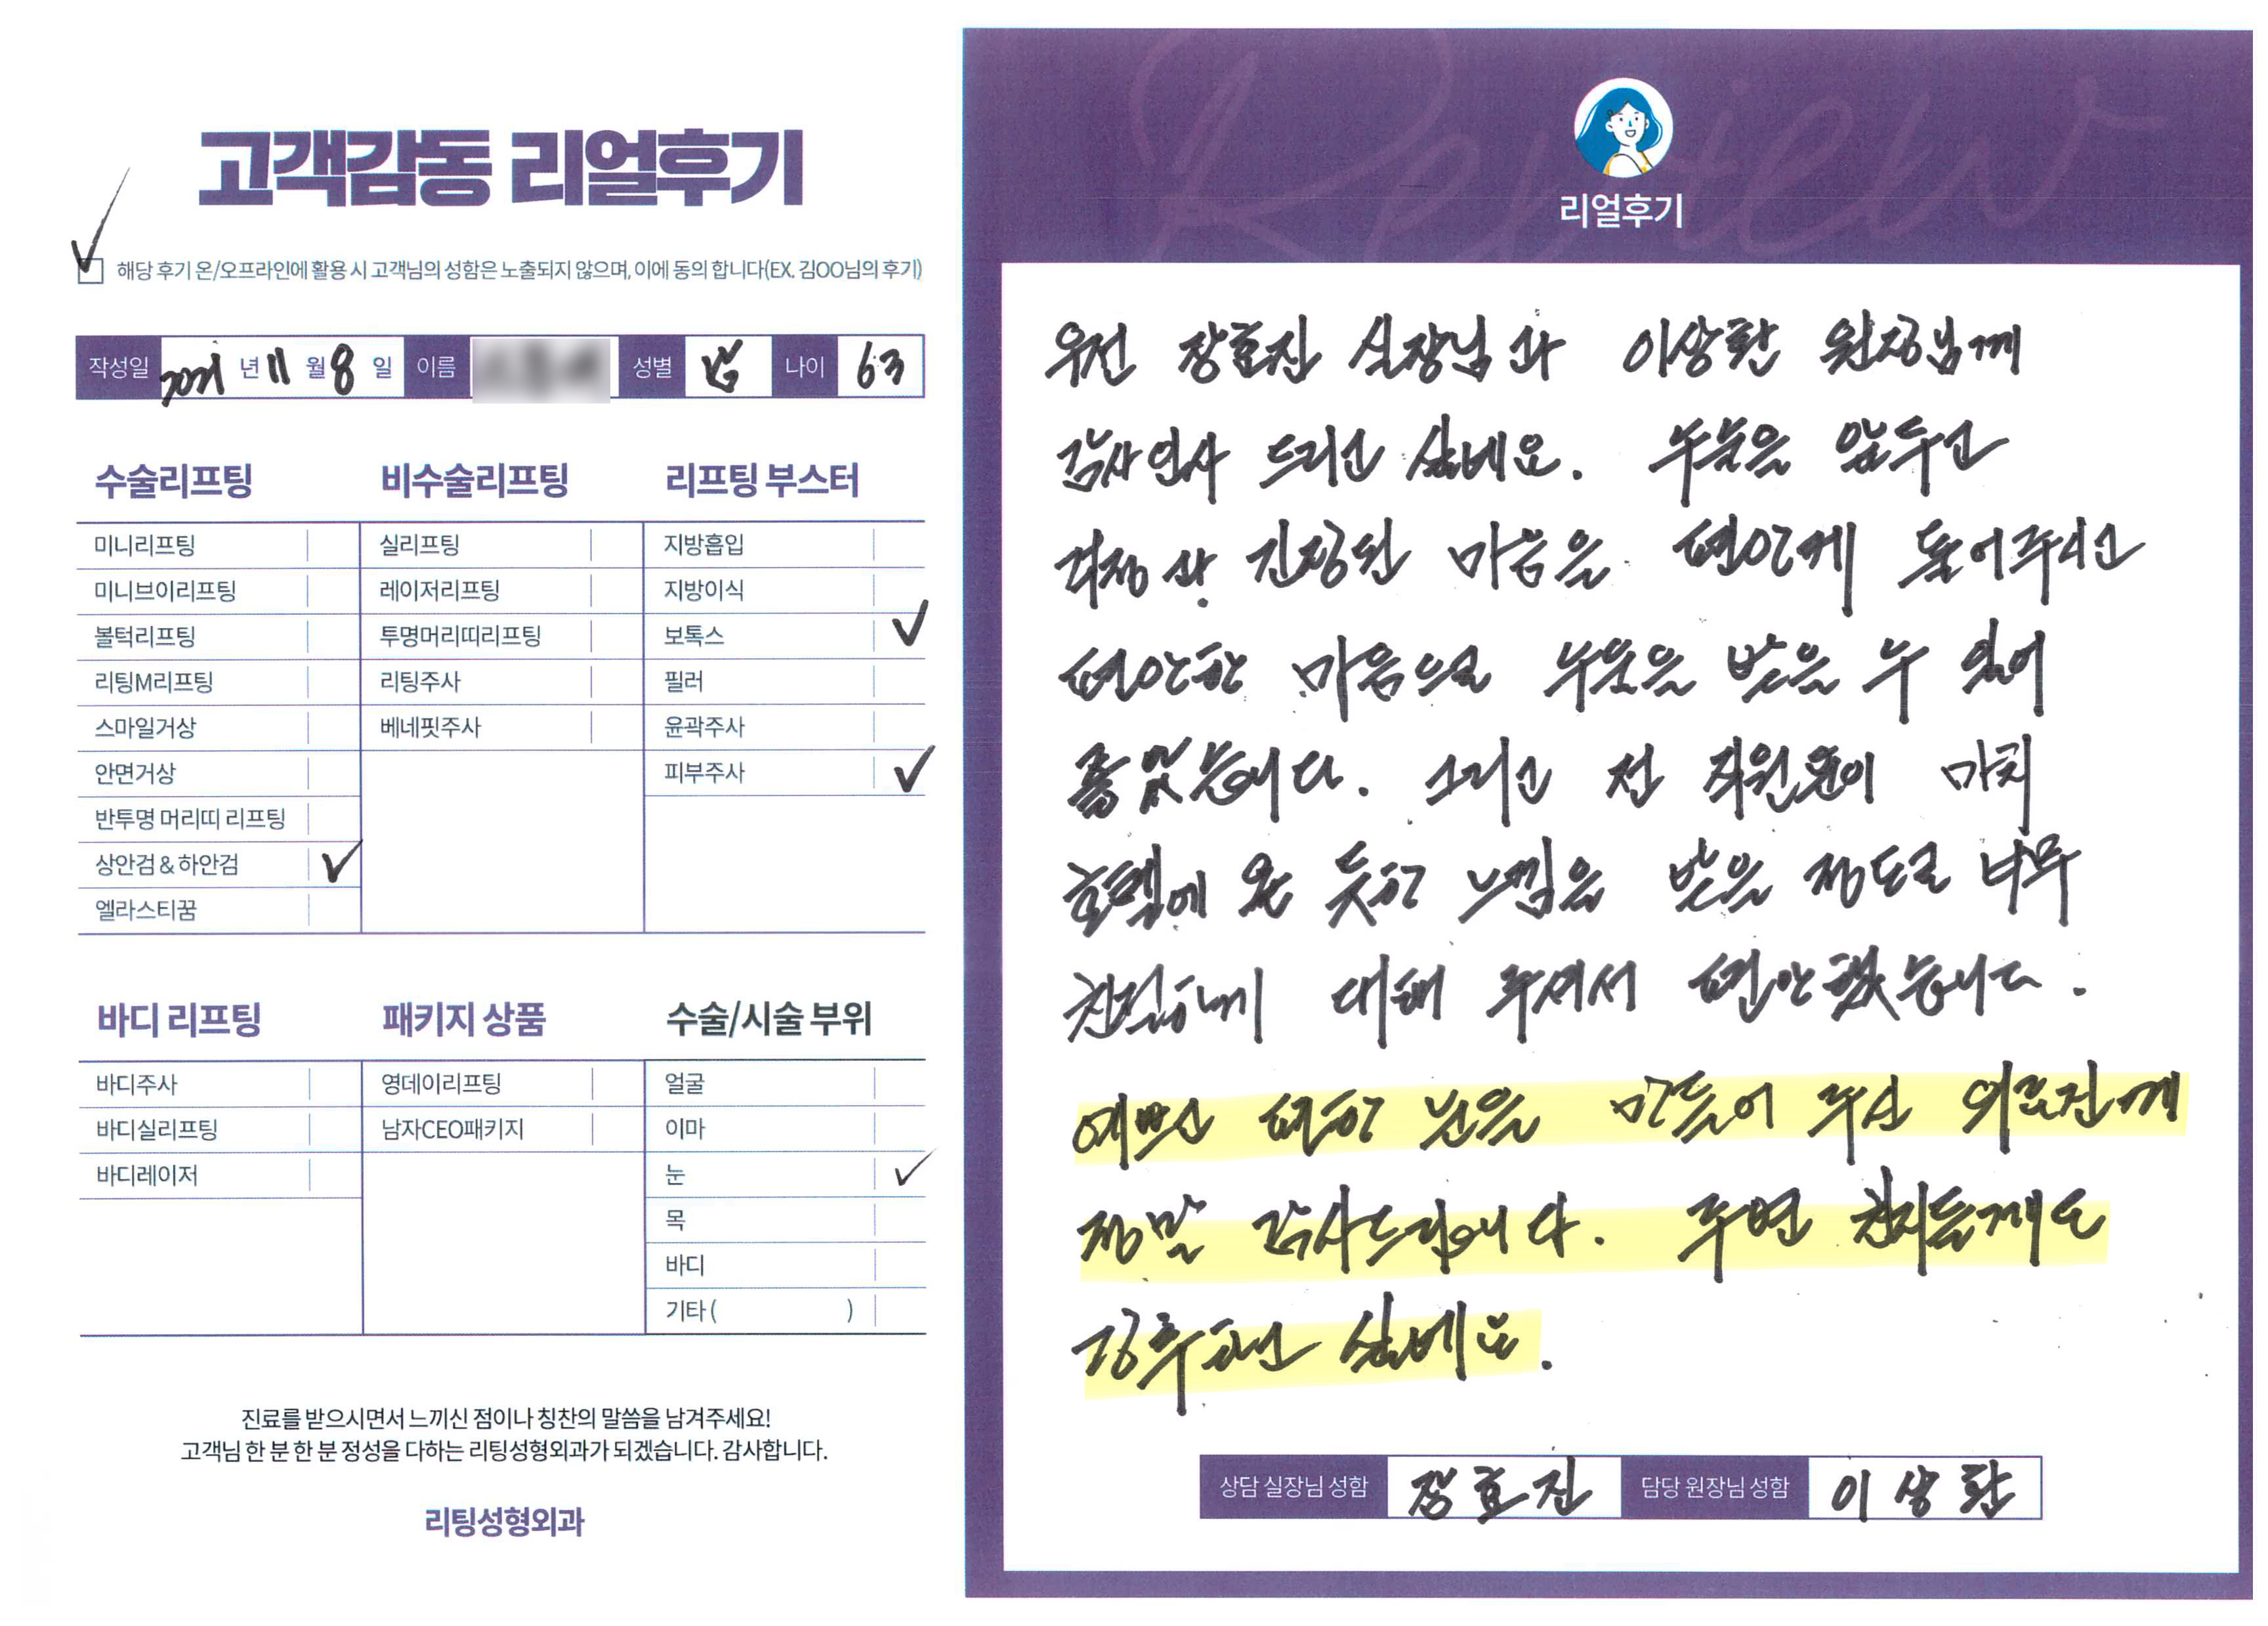 고객감동 리얼후기
해당 후기 온/오프라인에 활용 시 고객님의 성함은 노출되지 않으며, 이에 동의 합니다(EX. 김OO님의 후기)
작성일 2021 년 11 월 8 일 이름 성별 남 나이 63
수술리프팅
미니리프팅
미니브이리프팅
볼턱리프팅
리팅M리프팅
스마일거상
안면거상
반투명 머리띠 리프팅
상안검 & 하안검
엘라스티꿈
비수술리프팅
실리프팅
레이저리프팅
투명머리띠리프팅
리팅주사
베네핏주사
리프팅 부스터
지방흡입
지방이식
보톡스
필러
윤곽주사
피부주사
바디 리프팅
바디주사
바디실리프팅
바디레이저
패키지 상품
영데이리프팅
남자CEO패키지
수술/시술 부위
얼굴
이마
눈
목
바디
기타 ( )
진료를 받으시면서 느끼신 점이나 칭찬의 말씀을 남겨주세요!
고객님 한 분 한 분 정성을 다하는 리팅성형외과가 되겠습니다. 감사합니다.
리팅성형외과
Review
리얼후기
우선 장효진 실장님과 이상환 원장님께
감사인사 드리고 싶네요. 수술을 앞두고
걱정과 긴장된 마음을 편안케 풀어주시고
편안한 마음으로 수술을 받을 수 있어
좋았습니다. 그리고 전 직원분이 마치
호텔에 온 듯한 느낌을 받을 정도로 너무
친절하게 대해 주셔서 편안했습니다.
예쁘고 편한 눈을 만들어 주신 의료진께
정말 감사드립니다. 주변 친지들께도
강추하고 싶네요.
상담 실장님 성함 장효진 담당 원장님 성함 이상환